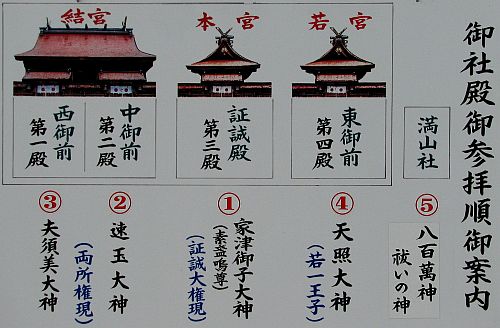 御社殿御参拝順御案内
満山社
⑤
八百萬神
祓いの神
若宮
東御前
第四殿
④
天照大神
（若一王子）
本宮
証誠殿
第三殿
①
家津御子大神
（素盞嗚尊）
（証誠大権現）
結宮
中御前
第二殿
西御前
第一殿
②
速玉大神
③
夫須美大神
（両所権現）